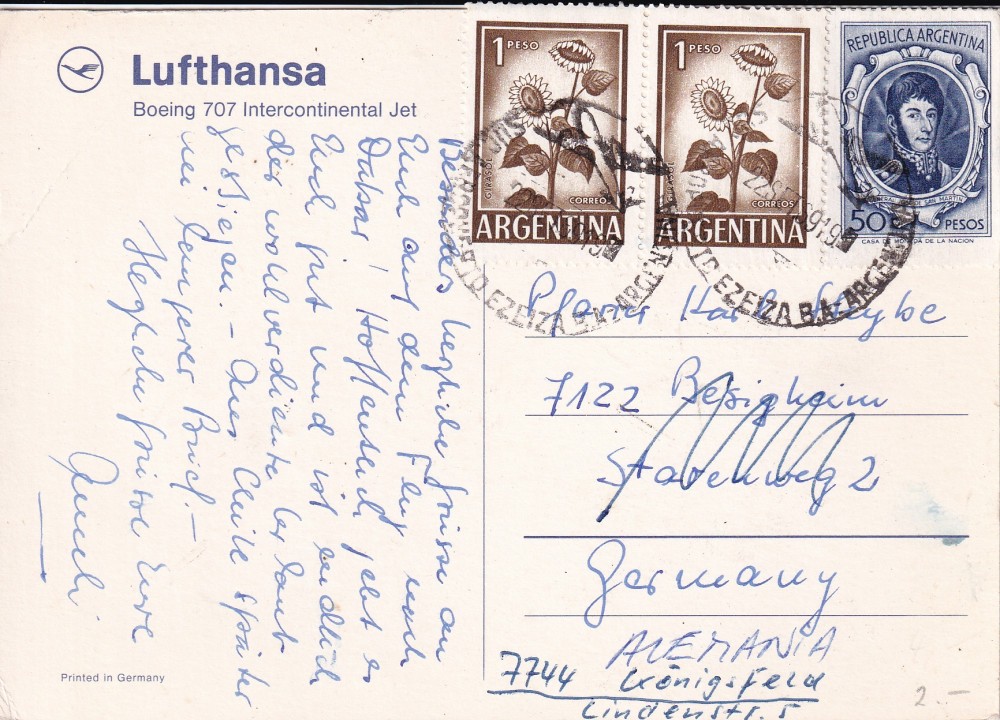 Lufthansa
Boeing 707 Intercontinental Jet
Besonders herzliche Grüsse an
Euch auf dem Flug nach
Dakar! Hoffentlich geht es
Euch gut und ist endlich
der wohlverdiente
gestiegen. – Aus Chile später
ein längerer Brief. –
Herzliche Grüsse Eure
Printed in Germany
1 PESO
GIRASOL
CORREOS
ARGENTINA
1 PESO
GIRASOL
CORREOS
ARGENTINA
REPUBLICA ARGENTINA
GENERAL JOSE DE SAN MARTIN
50 PESOS
CASA DE MONEDA DE LA NACION
EZEIZA B.A. ARGENTINA
EZEIZA B.A. ARGENTINA
Pfarrer Karl
7122 Besigheim
Starenweg 2
Germany
ALEMANIA
7744 Königsfeld
Lindenstr. 5
2.–